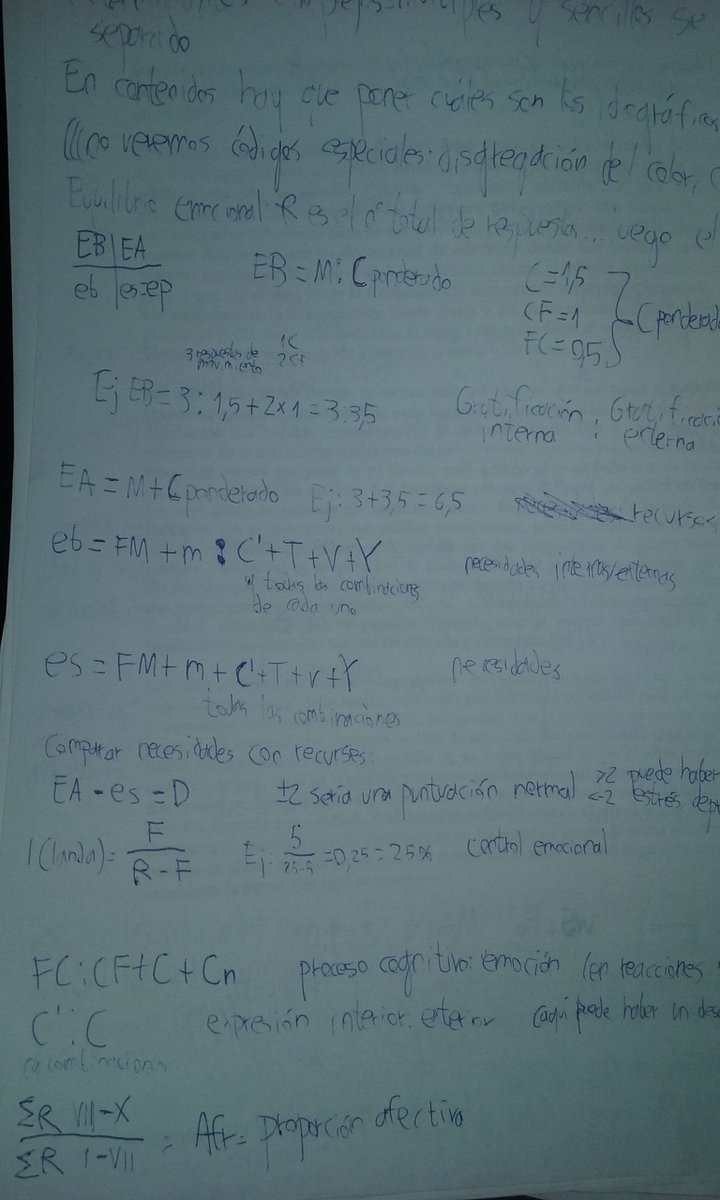 y sencillos se
separado
En contenidos hay que poner cuáles son los ideográficos
no veremos códigos especiales: disgregación del color, C
Equilibrio emocional: R es el nº total de respuestas... luego el
EB | EA
eb | es=ep
EB = M : C ponderado
C = 1,5
CF = 1
FC = 0,5
C ponderado
3 respuestas de movimiento
1C
2CF
Ej EB = 3 : 1,5 + 2x1 = 3:3,5
Gratificación interna : Gratificació externa
EA = M + C ponderado Ej: 3+3,5 = 6,5 recursos
eb = FM + m : C' + T + V + Y necesidades internas/externas
y todas las combinaciones
de cada uno
es = FM + m + C' + T + V + Y necesidades
todas las combinaciones
Comparar necesidades con recursos:
EA - es = D ±2 sería una puntuación normal >2 puede haber
<-2 estrés dep
l (landa) = F / R - F Ej: 5 / 25-5 = 0,25 = 25% control emocional
FC : CF + C + Cn proceso cognitivo: emoción (en reacciones
C' : C expresión interior: exterior (aquí puede haber un des
y combinaciones
ΣR VIII-X / ΣR I-VII = Afr = proporción afectiva